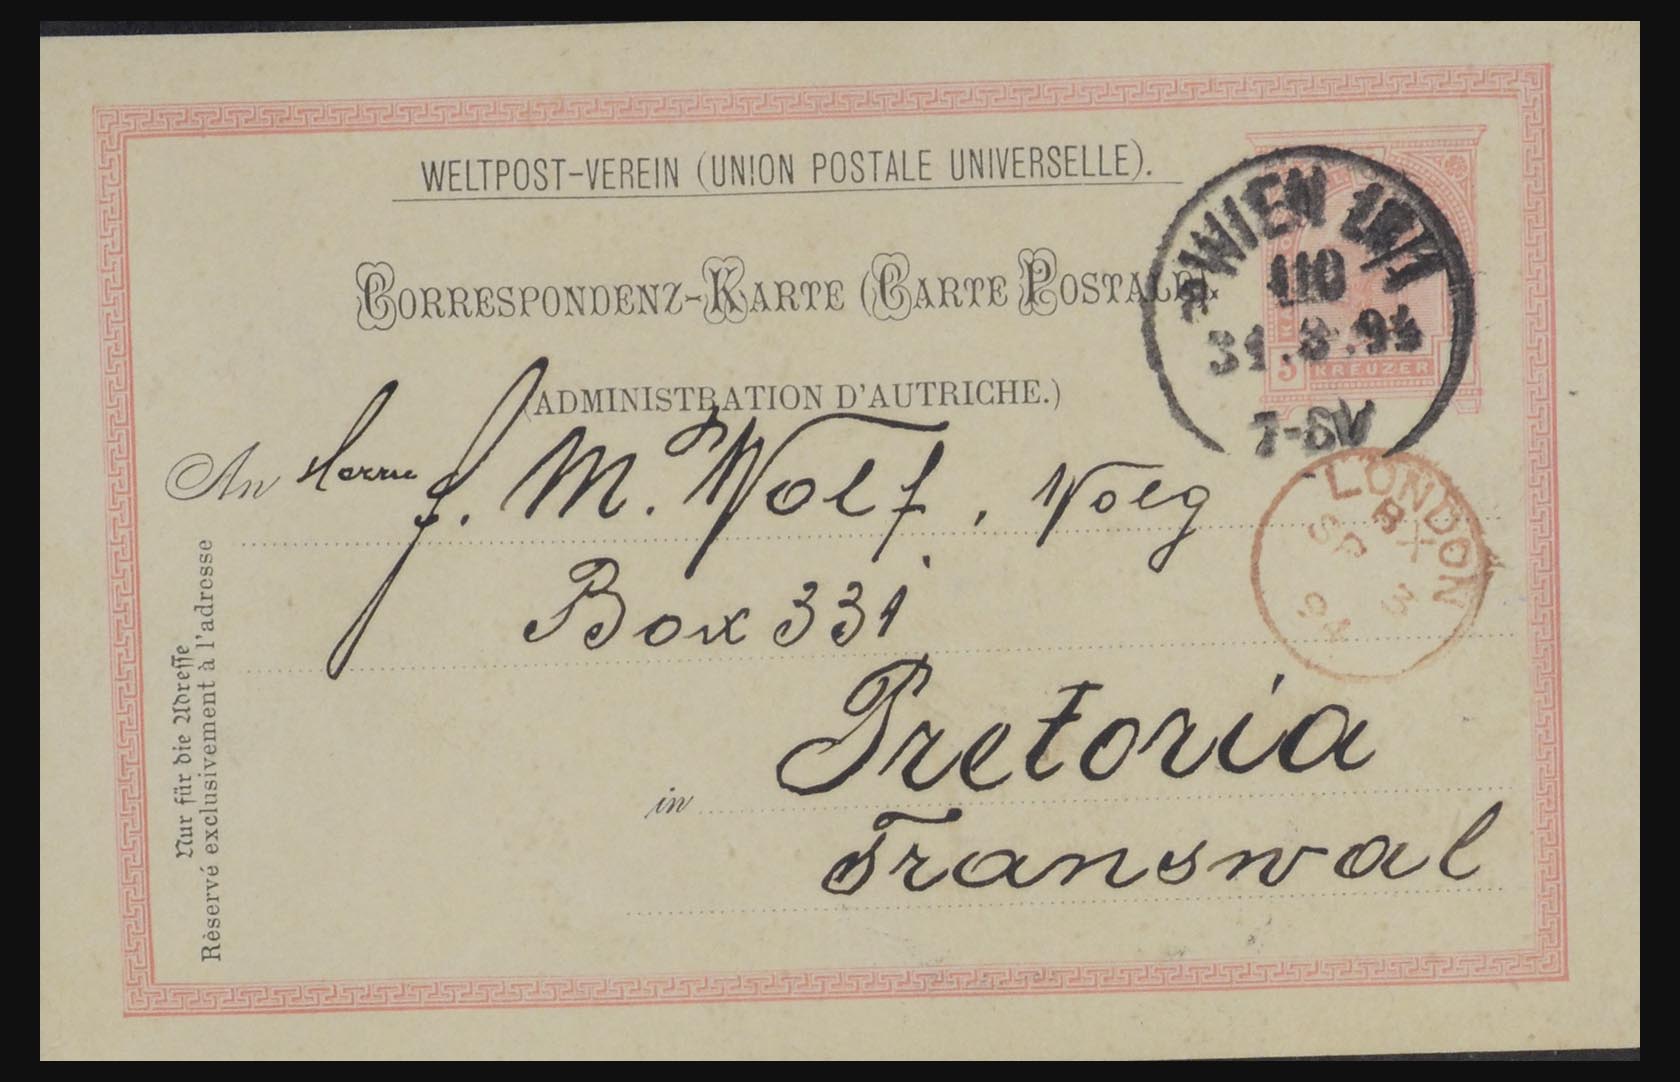 WELTPOST-VEREIN (UNION POSTALE UNIVERSELLE).
CORRESPONDENZ-KARTE (CARTE POSTALE).
(ADMINISTRATION D'AUTRICHE.)
WIEN
110
31.8.94
7-8V
5 KREUZER
An Herrn J. M. Wolf,
LONDON
BX
SP 3
94
Box 331
in Pretoria
Transwal
Nur für die Adresse
Rèservé exclusivement à l'adresse